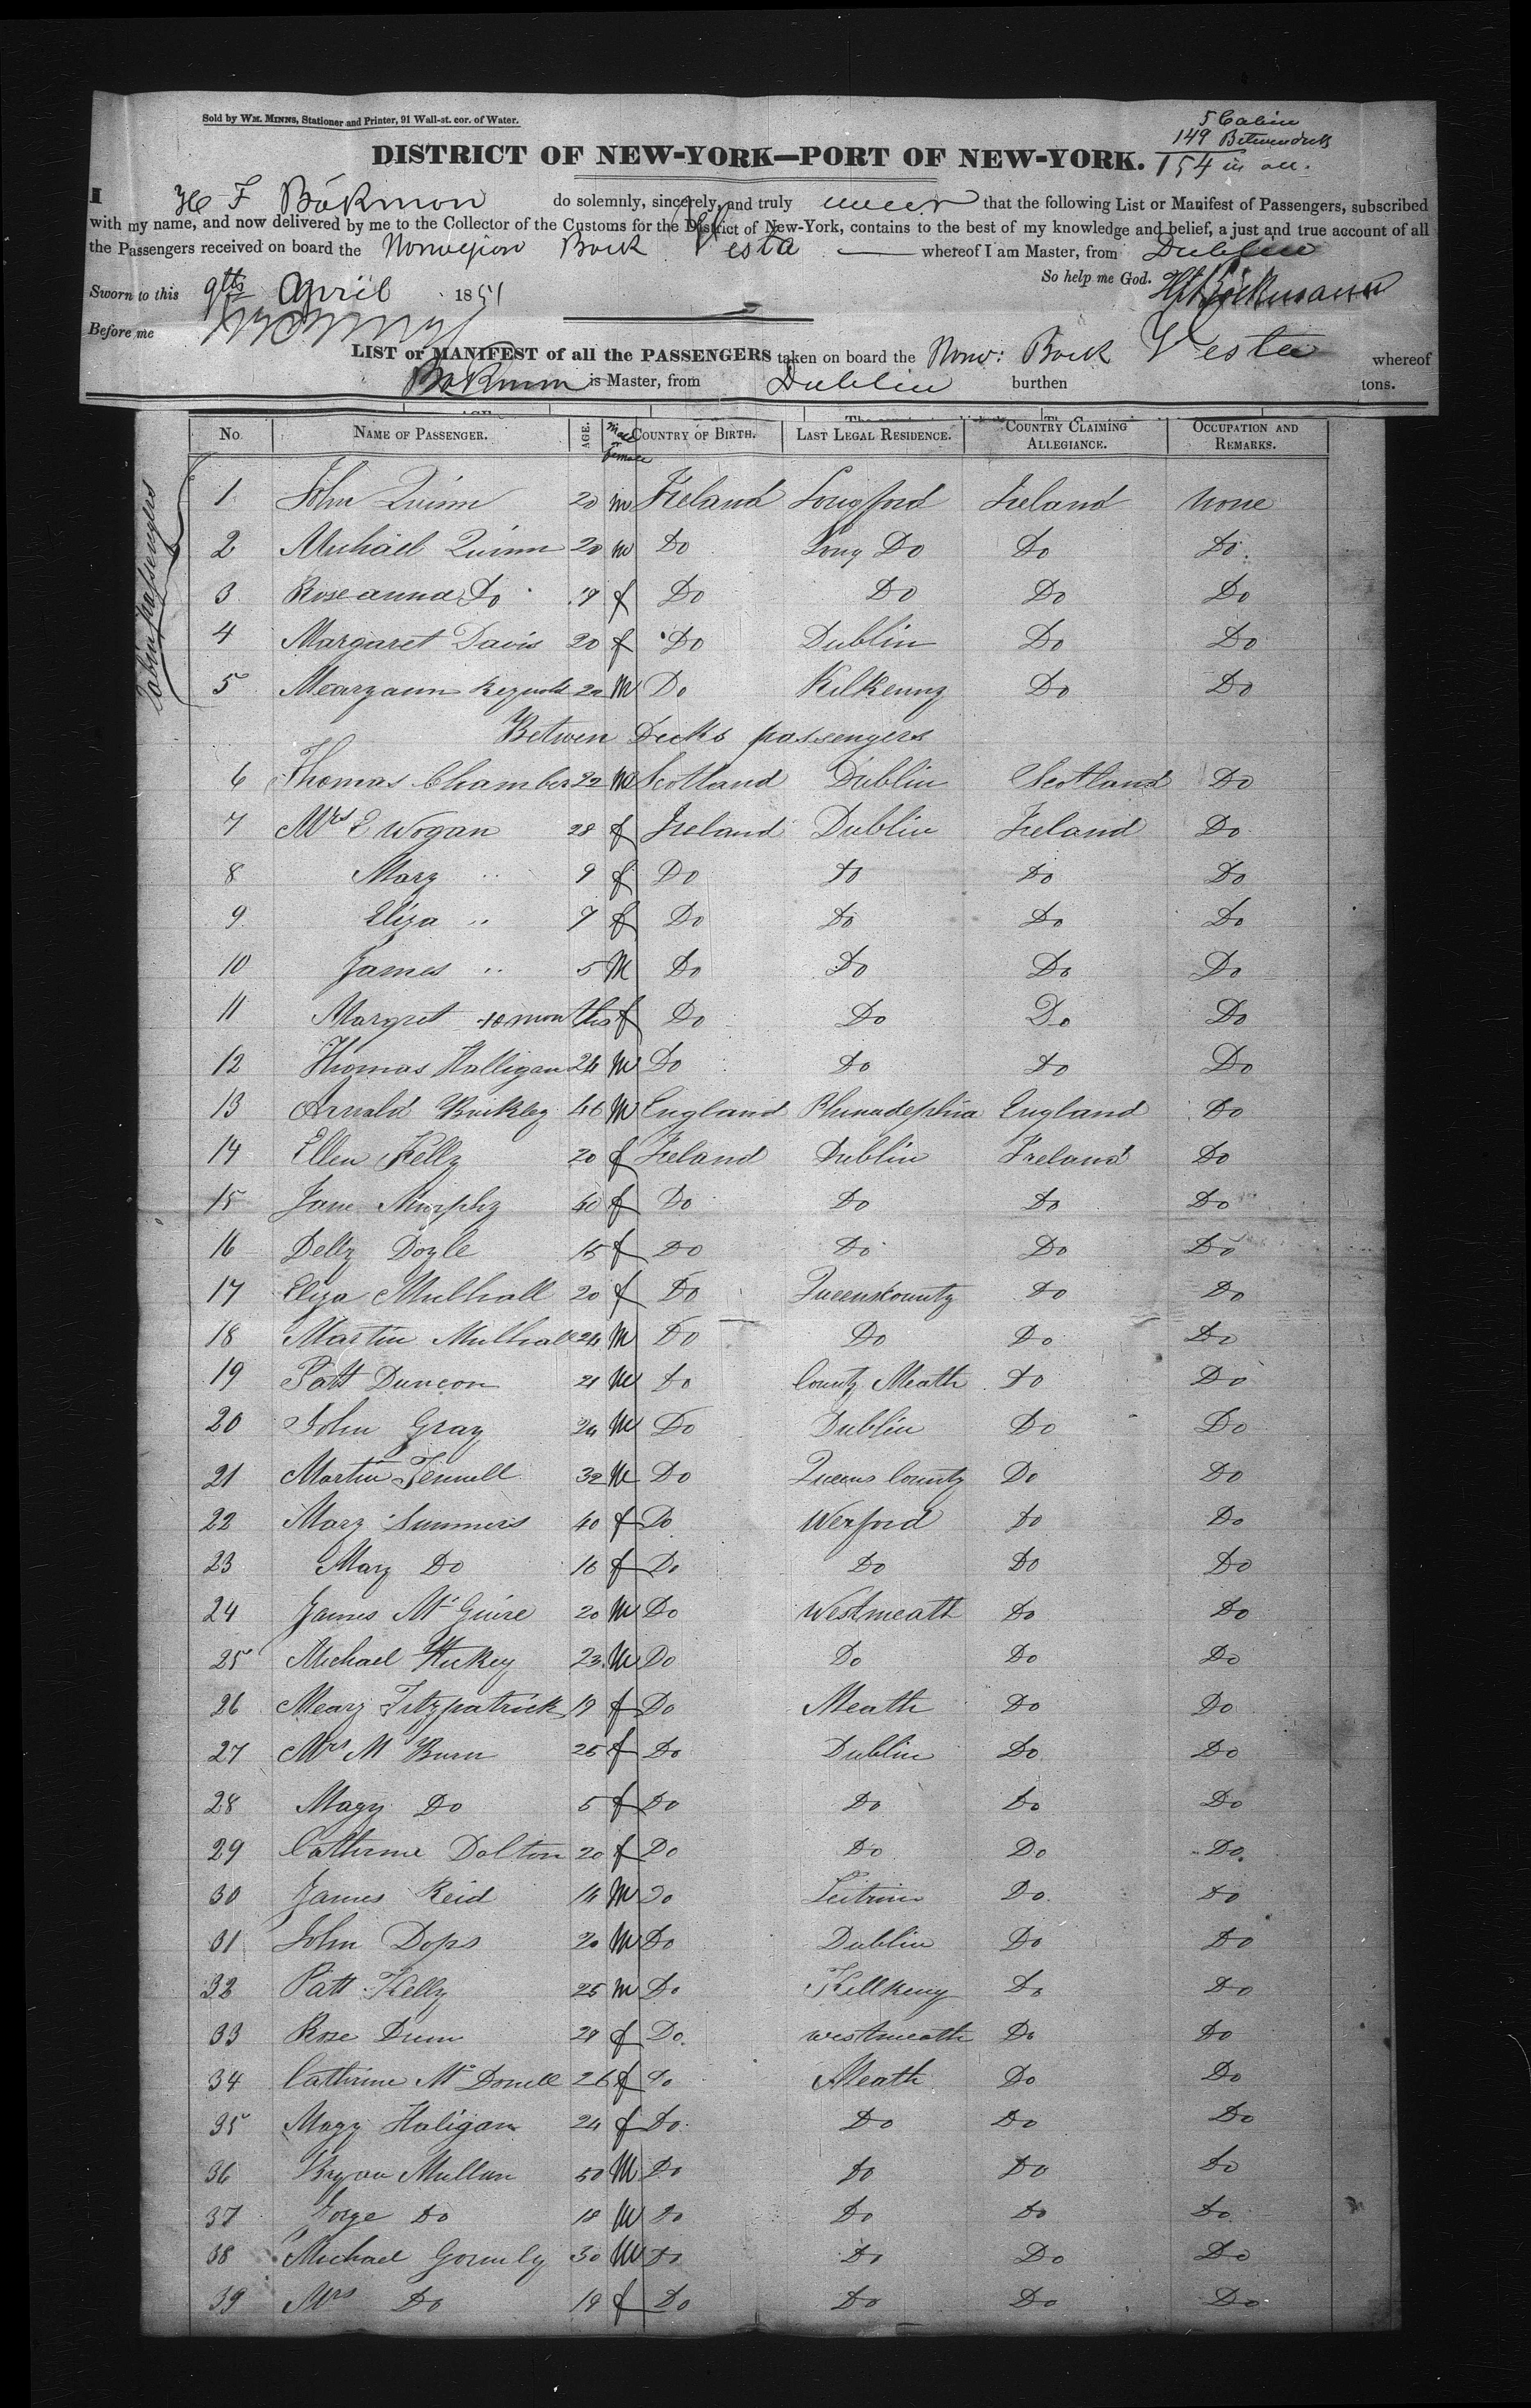 Sold by WM. MINNS, Stationer and Printer, 91 Wall-st. cor. of Water.
5 Cabin
149 Betwendecks
154 in all.
DISTRICT OF NEW-YORK—PORT OF NEW-YORK.
I H F Bökmon do solemnly, sincerely, and truly swear that the following List or Manifest of Passengers, subscribed
with my name, and now delivered by me to the Collector of the Customs for the District of New-York, contains to the best of my knowledge and belief, a just and true account of all
the Passengers received on board the Norwegion Bark Vesta whereof I am Master, from Dublin
So help me God.
Sworn to this 9th April 1851
Before me
LIST or MANIFEST of all the PASSENGERS taken on board the Norw: Bark Vesta whereof
is Master, from Dublin burthen tons.
No. NAME OF PASSENGER. AGE. Male or Female COUNTRY OF BIRTH. LAST LEGAL RESIDENCE. COUNTRY CLAIMING ALLEGIANCE. OCCUPATION AND REMARKS.
Cabin passengers
1 John Quinn 20 m Ireland Longford Ireland None
2 Michael Quinn 20 m Do Long Do Do Do
3 Roseanna Do 19 f Do Do Do Do
4 Margaret Davis 20 f Do Dublin Do Do
5 Mearyann Reynolds 20 M Do Kilkenny Do Do
Betwen Decks passengers
6 Thomas Chamber 22 M Scotland Dublin Scotland Do
7 Mrs E Wogan 28 f Ireland Dublin Ireland Do
8 Mary " 9 f Do Do Do Do
9 Eliza " 7 f Do Do Do Do
10 James " 5 M Do Do Do Do
11 Margret 10 months f Do Do Do Do
12 Thomas Halligan 24 M Do Do Do Do
13 Arnold Buckley 46 M England Phinadephia England Do
14 Ellen Kelly 20 f Ireland Dublin Ireland Do
15 Jane Murphy 40 f Do Do Do Do
16 Delly Doyle 15 f Do Do Do Do
17 Eliza Mulhall 20 f Do Queenscounty Do Do
18 Martin Mulhall 24 M Do Do Do Do
19 Patt Duncon 21 M Do County Meath Do Do
20 John Gray 24 M Do Dublin Do Do
21 Martin Fennell 32 M Do Queens County Do Do
22 Mary Summers 40 f Do Wexford Do Do
23 Mary Do 16 f Do Do Do Do
24 James McGuire 20 M Do Westmeath Do Do
25 Michael Hickey 23 M Do Do Do Do
26 Meary Fitzpatrick 19 f Do Meath Do Do
27 Mrs M Burn 26 f Do Dublin Do Do
28 Magy Do 5 f Do Do Do Do
29 Catherine Dolton 20 f Do Do Do Do
30 James Reid 14 M Do Leitrim Do Do
31 John Dops 20 M Do Dublin Do Do
32 Patt Kelly 25 M Do Killkeny Do Do
33 Rose Dunn 28 f Do westmeath Do Do
34 Catherine McDonell 26 f Do Meath Do Do
35 Magy Haligan 24 f Do Do Do Do
36 Bryan Mullen 50 M Do Do Do Do
37 Gorge Do 18 M Do Do Do Do
38 Michael Gormly 30 M Do Do Do Do
39 Mrs Do 19 f Do Do Do Do